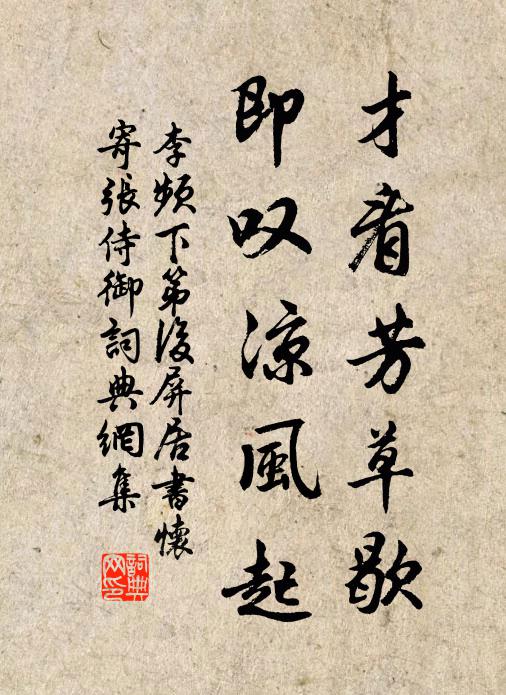 才看芳草歇
即叹涼風起
李頻下第後屏居書懷
寄張侍御詞典網集
詞典网印